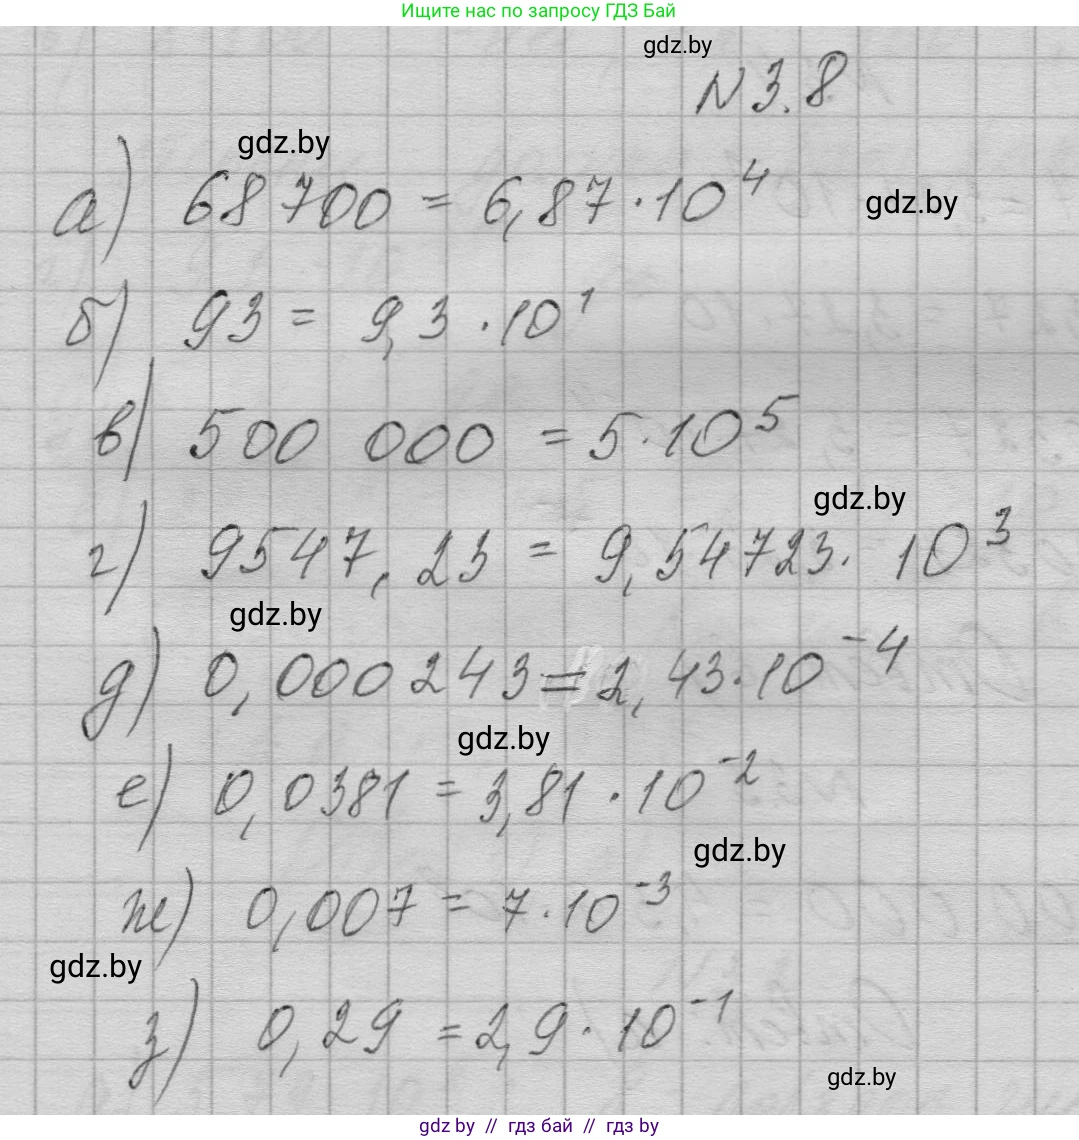 Ищите нас по запросу ГДЗ Бай
gdz.by
N 3.8
gdz.by
а) 68 700 = 6,87 · 10⁴
gdz.by
б) 93 = 9,3 · 10¹
в) 500 000 = 5 · 10⁵
gdz.by
г) 9547,23 = 9,54723 · 10³
gdz.by
д) 0,000243 = 2,43 · 10⁻⁴
gdz.by
е) 0,0381 = 3,81 · 10⁻²
gdz.by
ж) 0,007 = 7 · 10⁻³
gdz.by
з) 0,29 = 2,9 · 10⁻¹
gdz.by
gdz.by // гдз бай // гдз by